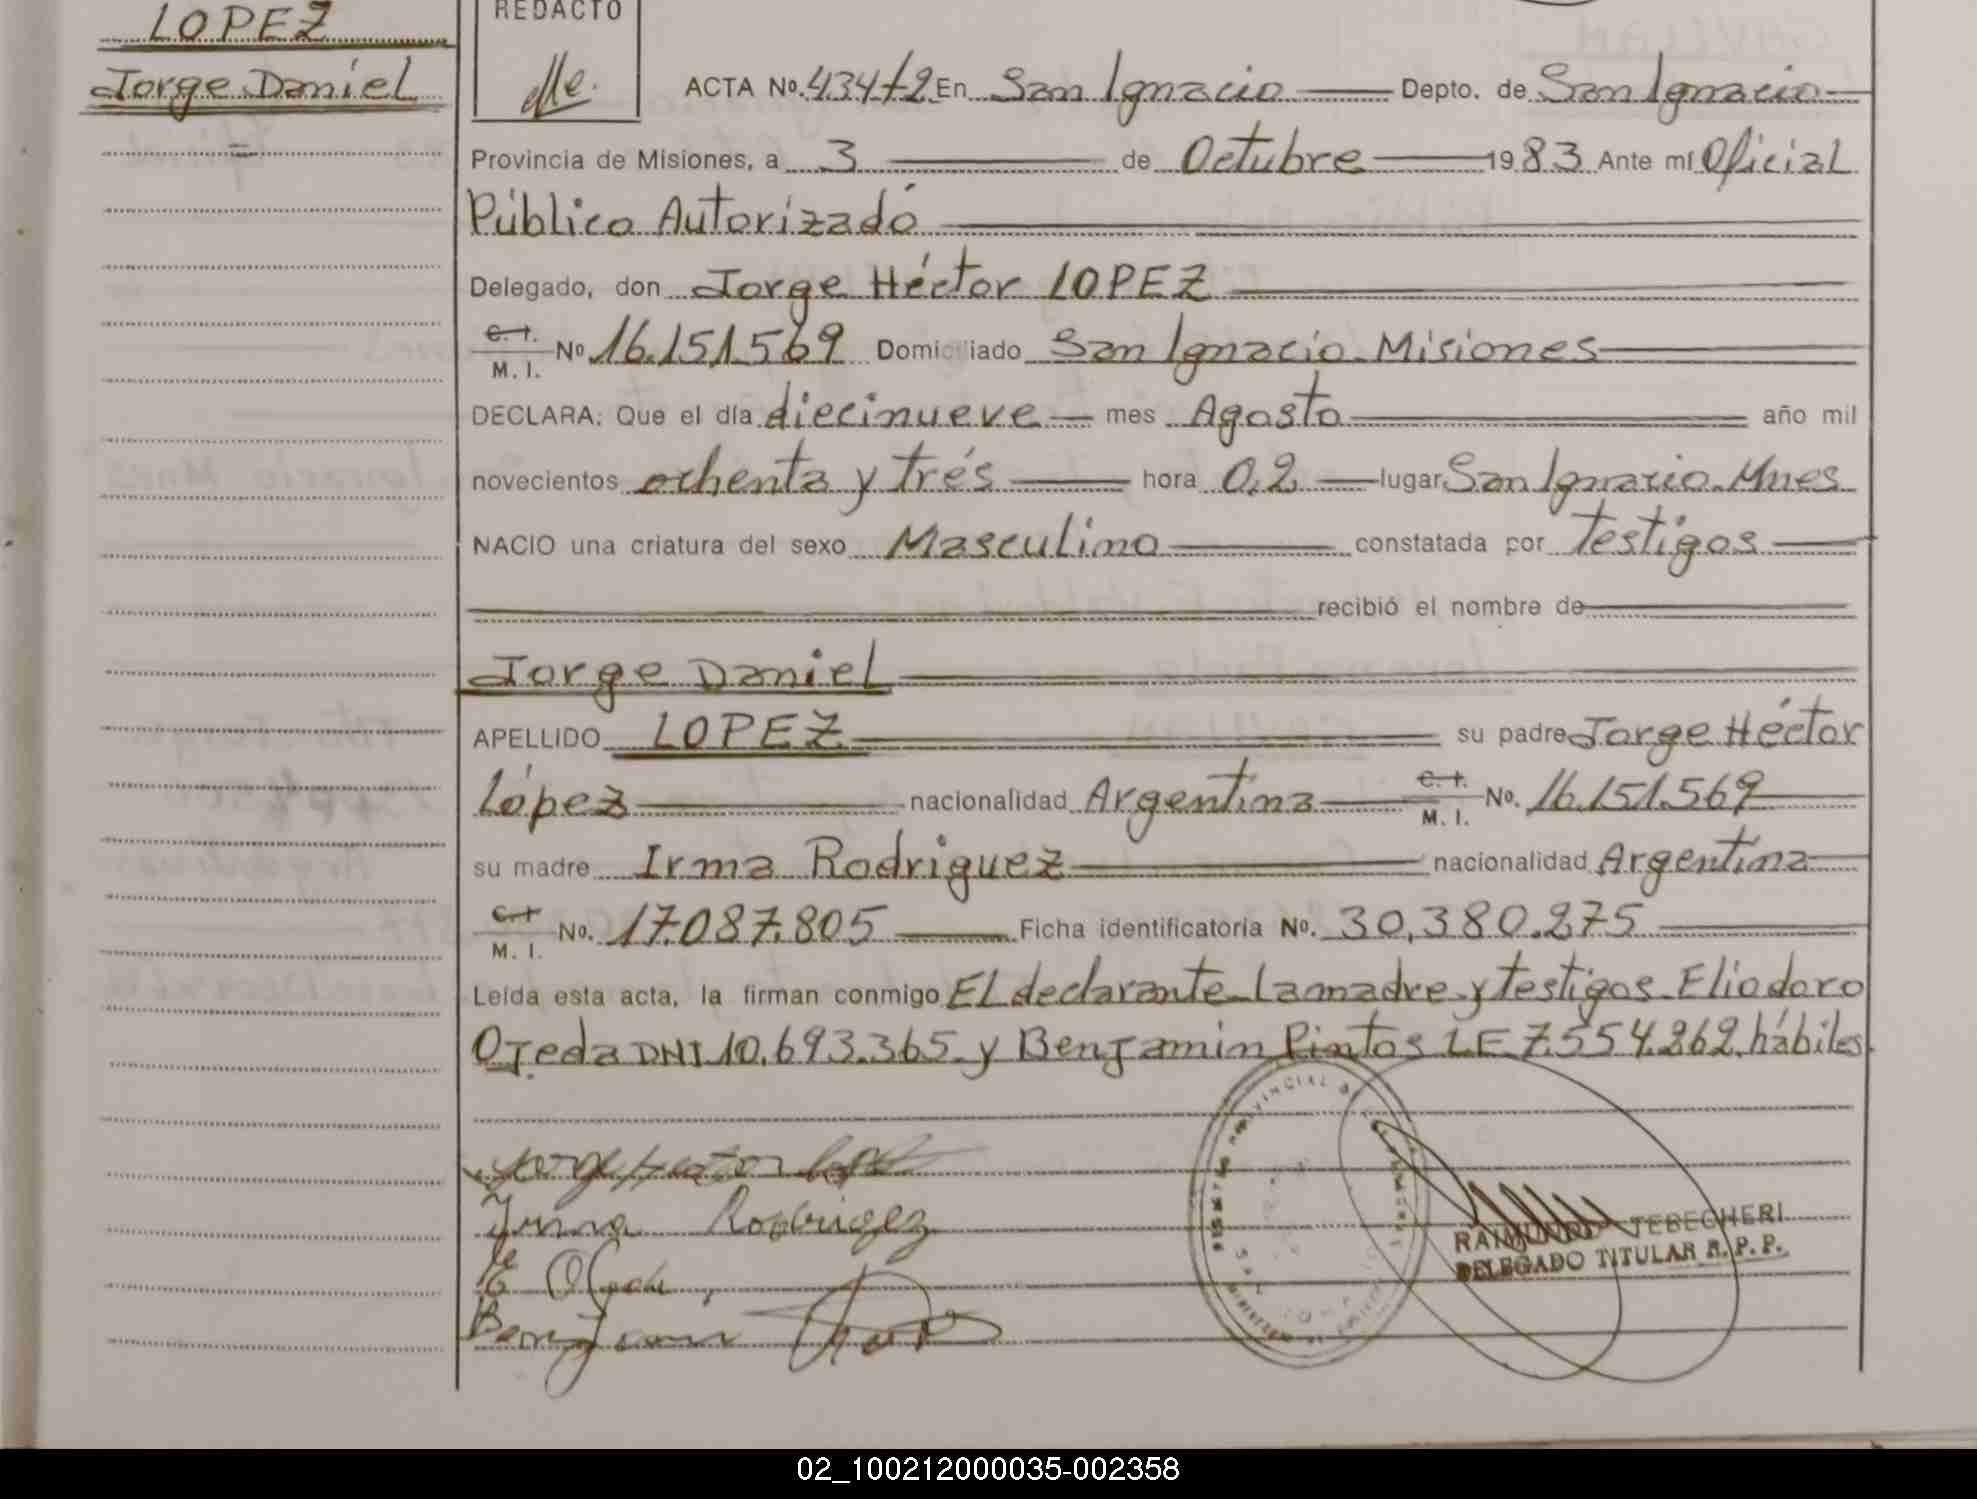 LOPEZ
Jorge Daniel
=
REDACTO
ACTA No. 434 t2 En San Ignacio Depto. de San Ignacio
Provincia de Misiones, a 3 de Octubre 1983 Ante mí Oficial
Público Autorizadó
Delegado, don Jorge Héctor LOPEZ
C. I. M. I. No 16.151.569 Domiciliado San Ignacio. Misiones
DECLARA: Que el día diecinueve mes Agosto año mil
novecientos ochenta y trés hora 0,2 lugar San Ignacio. Mnes
NACIO una criatura del sexo Masculino constatada por Testigos
recibió el nombre de
Jorge Daniel
APELLIDO LOPEZ su padre Jorge Héctor
López nacionalidad Argentina C. I. M. I. No. 16.151.569
su madre Irma Rodriguez nacionalidad Argentina
C. I. M. I. No. 17.087.805 Ficha identificatoria No. 30.380.275
Leída esta acta, la firman conmigo El declarante. La madre y testigos. Eliodoro
Ojeda DNI 10.693.365. y Benjamin Pintos LE 7.554.262. hábiles
Jorge Hector Lopez
Irma Rodriguez
E Ojeda
Benjamin
RAIMUNDO TEBECHERI
DELEGADO TITULAR R. P. P.
02_100212000035-002358